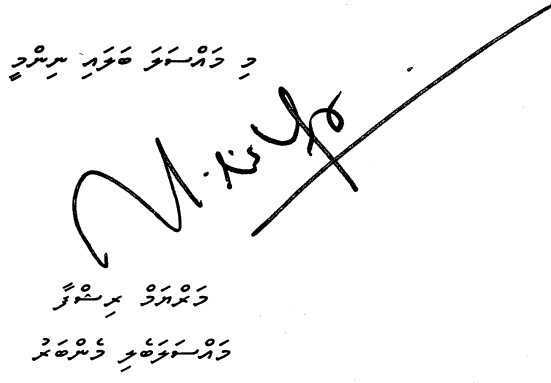 މި މައްސަލަ ބަލައި ނިންމީ
މަރްޔަމް ރިޝްފާ
މައްސަލަބެލި މެންބަރު